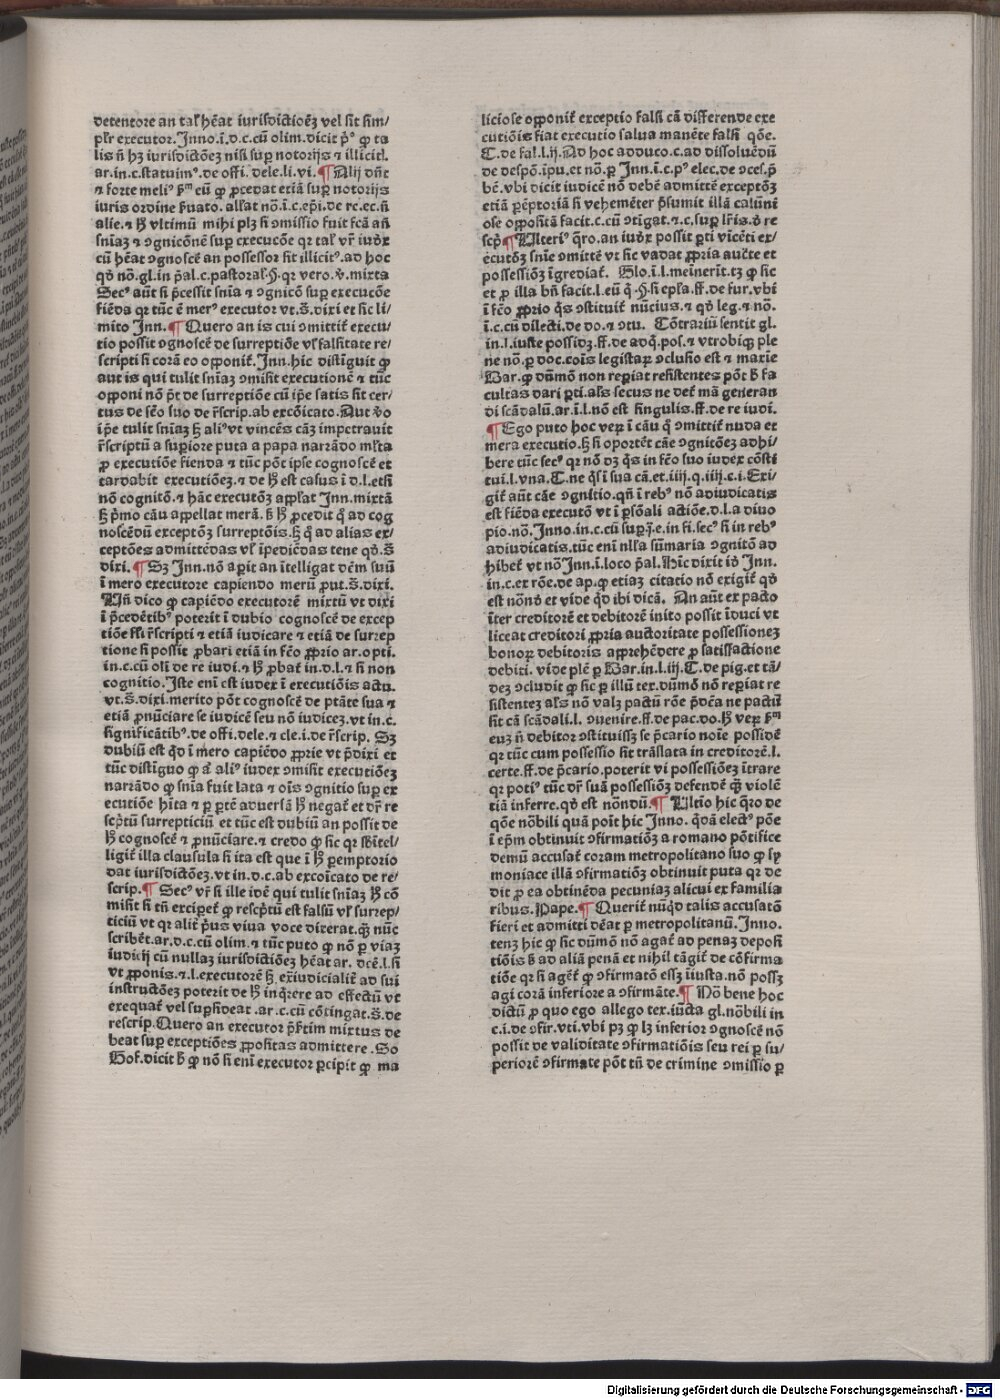 detentore an tal' hēat iurisdictioēʒ vel sit sim/
plr executor. Inno.ī.d.c.cū olim.dicit pꝰ ꝙ ta
lis nō hʒ iurisdictōeʒ nisi suꝑ notorijs ⁊ illicit.
ar.in.c.statuimꝰ.de offi.dele.li.vi.¶ Alij dn̄t
⁊ forte meliꝰ ꝙ ꝓcedat etiā suꝑ notorijs
iuris ordine ẜuato. allat nō.ī.c.ep̄i.de re.ec.ñ
alie.⁊ ꝙ vltimū mihi plʒ si ꝯmissio fuit fc̄a añ
sniaʒ ⁊ ꝯgnicōnē suꝑ execucōe qr tal' vr̄ iudx
cū hēat ꝯgnoscē an possessor sit illicitꝰ.ad hoc
qd̓ nō.gl.in p̄al.c.pastoral.§.qr vero.v̓.mixta
Secꝰ aūt si p̄cessit snīa ⁊ ꝯgnicō suꝑ execucōe
fiēda qr tūc ē merꝰ executor vt.s̄.dixi et sic li/
mito Inn.¶ Quero an is cui ꝯmittit̄ execu/
tio possit ꝯgnoscē de surreptiōe vl' falsitate re/
scripti si corā eo opponit̄. Inn.hic distīguit ꝙ
aut is qui tulit sniaʒ ꝯmisit executionē ⁊ tūc
opponi nō pōt de surreptiōe cū ip̄e satis sit cer/
tus de fc̄o suo de r̄scrip.ab excōicato. Aut vo
ip̄e tulit sniaʒ ꝫ aliꝰ vt vincēs cāʒ impetrauit
r̄scriptū a suꝑiore puta a papa narrādo ml'ta
ꝓ executiōe fienda ⁊ tūc pōt ipse cognoscē et
tardabit executiōeʒ.⁊ de ꝫ est casus ī d.l.etsi
nō cognitō.⁊ hāc executōʒ appellat Inn.mixtā
ꝫ p̄mo cāu appellat merā. ꝫ ꝫ ꝓcedit q̄ ad cog
noscēdū exceptōʒ surreptōis.ꝫ q̄ ad alias ex/
ceptōes admittēdas vl' īpediēdas tene qd̓.s̄
dixi.¶ Sʒ Inn.nō aꝑit an ītelligat dc̄m suū
ī mero executore capiendo merū put.s̄.dixi.
Un̄ dico ꝙ capiēdo executorē mixtū vt dixi
ī p̄cedētibꝰ poterit ī dubio cognoscē de excep
tiōe fl'i r̄scripti ⁊ etiā iudicare ⁊ etiā de surrep
tione si possit ꝓbari etiā in fc̄o ꝓprio ar.opti.
in.c.cū oli de re iudi.⁊ ꝫ ꝓbat̄ in.d.l.⁊ si non
cognitio. Iste enī est iudex ī executiōis actu.
vt.s̄.dixi.merito pōt cognoscē de ptāte sua ⁊
etiā ꝓnūciare se iudicē seu nō iudiceʒ.vt in.c.
significātibꝰ.de offi.dele.⁊ cle.i.de r̄scrip. Sʒ
dubiū est qd̓ ī mero capiēdo ꝓprie vt p̄dixi et
tūc distīguo ꝙ aliꝰ iudex ꝯmisit executiōeʒ
narrādo ꝙ snīa fuit lata ⁊ oīs ꝯgnitio suꝑ ex
ecutiōe hīta ⁊ ꝑ ꝑtē aduersā ꝫ negat̄ et dr̄ re
scp̄tū surrepticiū et tūc est dubiū an possit de
ꝫ cognoscē ⁊ ꝓnūciare.⁊ credo ꝙ sic qr sb̄itel/
ligit̄ illa clausula si ita est que ī ꝫ ꝑemptorio
dat iurisdictōeʒ.vt in.d.c.ab excoīcato de re/
scrip.¶ Secꝰ vr̄ si ille idē qui tulit sniaʒ ꝫ cō
misit si tn̄ excipet̄ ꝙ rescp̄tū est falsū vl' surrep/
ticiū vt qr alit̄ p̄us viua voce dixerat.q̄ nūc
scribēt.ar.d.c.cū olim.⁊ tūc puto ꝙ nō ꝑ viaʒ
iudicij cū nullaʒ iurisdictiōeʒ hēat ar. dc̄e.l.si
vt ꝓponis.⁊.l.executorē ꝫ ex̄iudicialit̄ ad sui
instructōeʒ poterit de ꝫ inq̄rere ad effectū vt
exequat̄ vel suꝑsideat.ar.c.cū cōtingat.s̄.de
rescrip.Quero an executor p̄sertim mixtus de
beat suꝑ exceptiōes ꝓpositas admittere. Go
Hof.dicit ꝙ nō si enī executor ꝑcipit ꝙ ma
liciose opponit̄ exceptio falsi cā differende exe
cutiōis fiat executio salua manēte falsi qōe.
C.de fal.l.ij. Ad hoc adduco.c.ad dissoluēdū
de despō.ipu.et nō.ꝑ Inn.ī.c.pꝰ elec.de ꝯces.p̄
bē.vbi dicit iudicē nō debē admittē exceptōʒ
etiā ꝑēptoriā si vehemēter p̄sumit illā calūni
ose oppositā facit.c.cū ꝯtigat.⁊.c.suꝑ lr̄is.d̓ re
scp̄.¶ Ulteriꝰ q̄ro.an iudx possit ꝑti vīcēti ex/
ecutōʒ snīe ꝯmittē vt sic vadat ꝓpria aucte et
possessiōʒ īgrediat̄. Glo.ī.l.meinerīt.tʒ ꝙ sic
et ꝓ illa bn̄ facit.l.eū q̄.§.si epl'a.ff.de fur.vbi
ī fc̄o ꝓprio q̄s ꝯstituit̄ nūcius.⁊ qd̓ leg.⁊ nō.
ī.c.cū dilecti.de do.⁊ ꝯtu. Cōtrariū sentit gl.
in.l.iuste possidʒ.ff.de adq̄.pos.⁊ vtrobiqʒ ple
ne nō.ꝑ doc.coīs legistaꝝ ꝯclusio est ⁊ maxie
Bar.ꝙ dūmō non reꝑiat resistentes pōt ꝫ fa
cultas dari ꝑti.al's secus ne det̄ mā generan
di scādalū.ar.ī.l.nō est singulis.ff.de re iudi.
¶ Ego puto hoc veꝝ ī cāu q̄ ꝯmittit̄ nuda et
mera executio.ꝫ si oportēt cāe ꝯgnitōeʒ adhi/
bere tūc secꝰ qr nō dʒ q̄s in fc̄o suo iudex cōsti
tui.l.vna.C.ne q̄s ī sua cā.et.iiij.q.iiij.c.i.Exi/
git̄ aūt cāe ꝯgnitio.qn̄ ī rebꝰ nō adiudicatis
est fiēda executō vt ī ꝑsōali actiōe.d.l.a diuo
pio.nō.Inno.in.c.cū suꝑ.§.e.in fi.secꝰ si in rebꝰ
adiudicatis.tūc enī nl'la sūmaria ꝯgnitō ad
hibet̄ vt nō Inn.ī.loco p̄al.Hic dixit id̓ Inn.
in.c.ex rōe.de ap.ꝙ etiaʒ citatio nō exigit̄ qd̓
est nōnd̓ et vide q̄d ibi dicā. An aūt ex pacto
īter creditorē et debitorē inito possit īduci vt
liceat creditori ꝓpria auctoritate possessioneʒ
bonoꝝ debitoris apprehēdere ꝓ satisfactione
debiti. vide plē ꝑ Bar.in.l.iij.C.de pig.et tā/
deʒ ꝯcludit ꝙ sic ꝑ illū tex.dūmō nō reꝑiat re
sistenteʒ al's nō valʒ pactū rōe p̄dc̄a ne pactū
sit cā scādali.l. ꝯuenire.ff.de pac.do.ꝫ veꝝ ẜm
euʒ si debitor ꝯstituissʒ se p̄cario noīe possidē
qr tūc cum possessio sit trāslata in creditorē.l.
certe.ff.de p̄cario.poterit vi possessiōeʒ ītrare
qr potiꝰ tūc dr̄ suā possessiōʒ defendē q̄ violē
tiā inferre.qd̓ est nōndū.¶ Ultīo hic q̄ro de
qōe nōbili quā poīt hic Inno. q̄dā electꝰ pōe
ī ep̄m obtinuit ꝯfirmatiōʒ a romano pōtifice
demū accusat̄ coram metropolitano suo ꝙ sy
moniace illā ꝯfirmatiōʒ obtinuit puta qr de
dit ꝓ ea obtinēda pecuniaʒ alicui ex familia
ribus.Pape.¶ Querit̄ nūqd̓ talis accusatō
fieri et admitti dēat ꝑ metropolitanū. Inno.
tenʒ hic ꝙ sic dūmō nō agat̄ ad penaʒ deposi
tiōis ꝫ ad aliā penā et nihil tāgit̄ de cōfirma
tiōe qr si aget̄ ꝙ ꝯfirmatō essʒ īiusta.nō possʒ
agi corā inferiore a ꝯfirmāte.¶ Nō bene hoc
dictū ꝓ quo ego allego tex.iūcta gl.nōbili in
c.i.de ꝯfir.vti.vbi pʒ ꝙ lʒ inferior ꝯgnoscē nō
possit de validitate ꝯfirmatiōis seu rei ꝑ su/
periorē ꝯfirmate pōt tn̄ de crimine ꝯmissio ꝑ
Digitalisierung gefördert durch die Deutsche Forschungsgemeinschaft - DFG